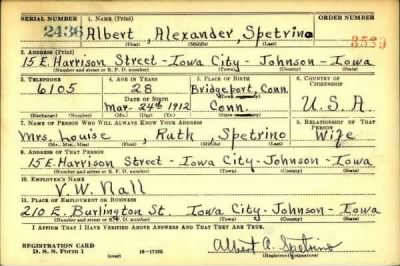 SERIAL NUMBER 1. NAME (Print) ORDER NUMBER
2436 Albert, Alexander, Spetrino 3589
(First) (Middle) (Last)
2. ADDRESS (Print)
15 E. Harrison Street - Iowa City - Johnson - Iowa
(Number and street or R. F. D. number) (Town) (County) (State)
3. TELEPHONE 4. AGE IN YEARS 5. PLACE OF BIRTH 6. COUNTRY OF CITIZENSHIP
6105 28 Bridgeport, Conn.
DATE OF BIRTH (Town or county)
Mar-24th 1912 Conn. U.S.A
(Exchange) (Number) (Mo.) (Day) (Yr.) (State or country)
7. NAME OF PERSON WHO WILL ALWAYS KNOW YOUR ADDRESS 8. RELATIONSHIP OF THAT PERSON
Mrs. Louise, Ruth, Spetrino Wife
(Mr., Mrs., Miss) (First) (Middle) (Last)
9. ADDRESS OF THAT PERSON
15 E. Harrison Street - Iowa City - Johnson - Iowa
(Number and street or R. F. D. number) (Town) (County) (State)
10. EMPLOYER'S NAME
V. W. Nall
11. PLACE OF EMPLOYMENT OR BUSINESS
210 E. Burlington St. Iowa City - Johnson - Iowa
(Number and street or R. F. D. number) (Town) (County) (State)
I AFFIRM THAT I HAVE VERIFIED ABOVE ANSWERS AND THAT THEY ARE TRUE.
REGISTRATION CARD
D. S. S. Form 1 16-17105 Albert A. Spetrino
(over) (Registrant's signature)